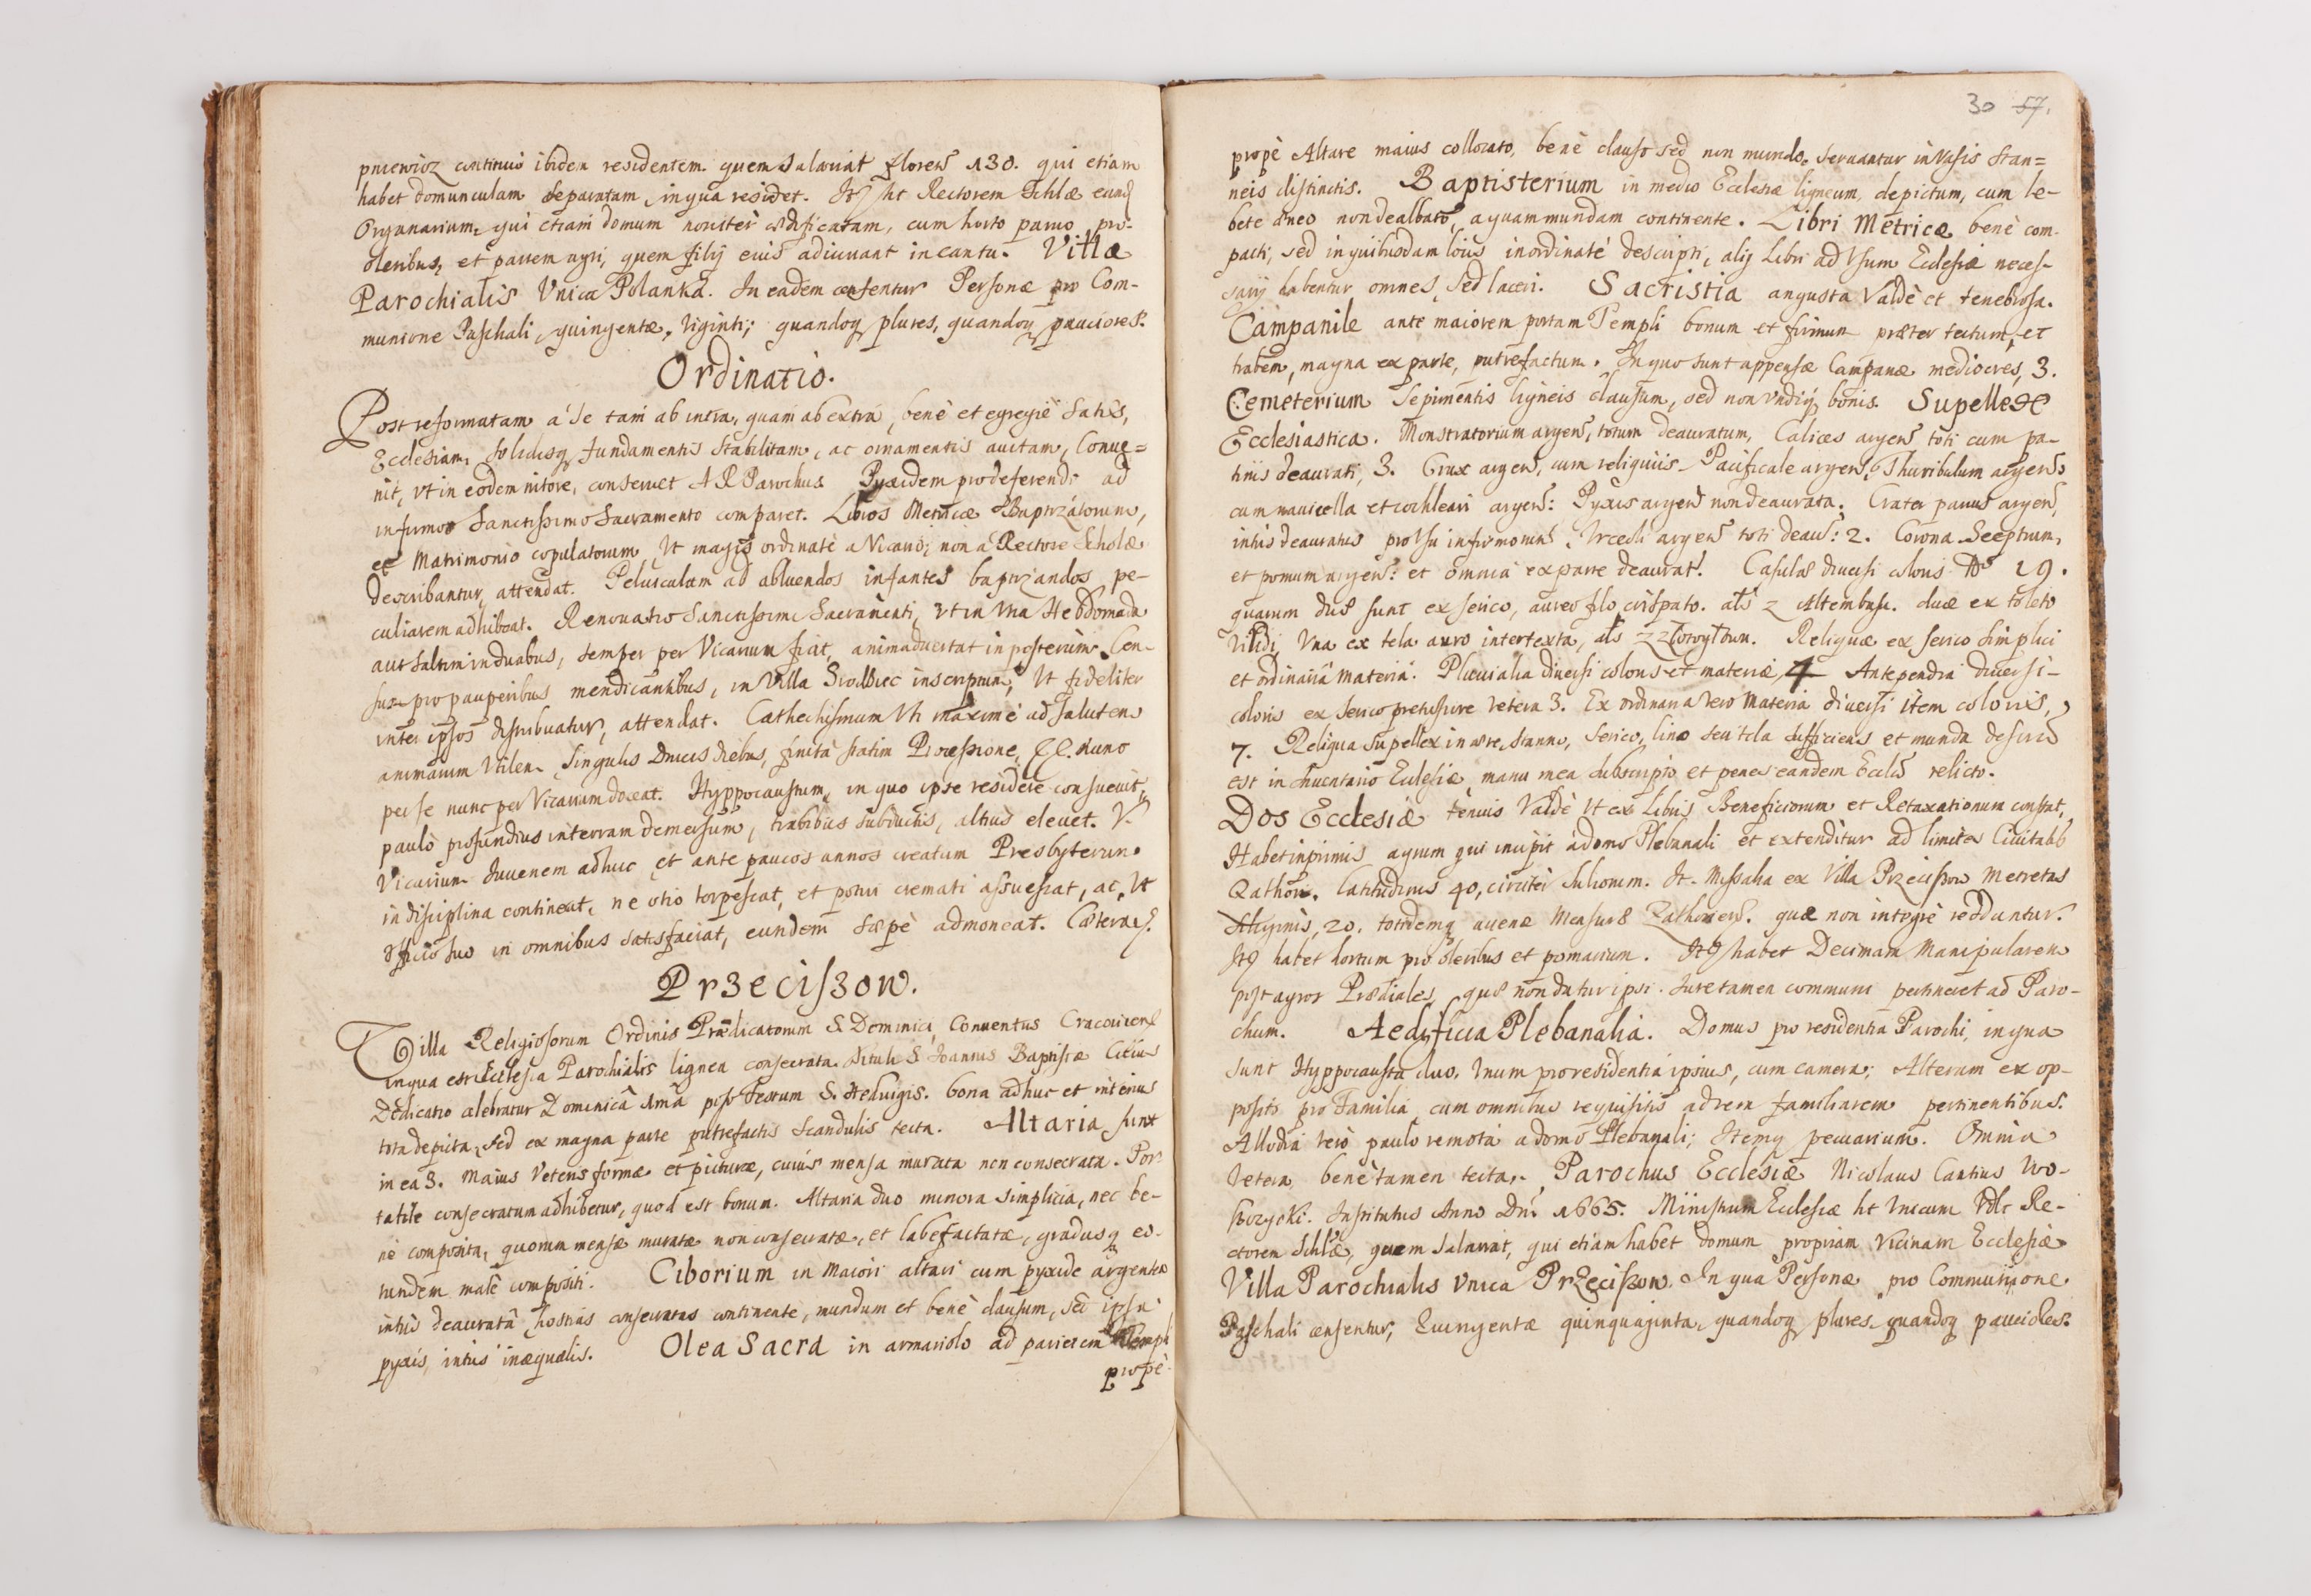 pniewicz continuo ibidem residentem. quem salariat floren 130. qui etiam
habet domunculam separatam, in qua residet. Itq; ht Rectorem Schlæ eund
Organarium, qui etiam domum noviter ædificatam, cum horto parvo pro
oleribus, et partem agri, quem filij eius adiuvant in cantu. Villa
Parochialis Unica Polanka. In eadem censentur Personæ pro Com-
munione Paschali, quingentæ, viginti; quandoq plures, quandoq pauciores.
Ordinatio.
Post reformatam a se tam ab intra, quam ab extra, benè et egregiè satis,
Ecclesiam, solidisq fundamentis stabilitam, ac ornamentis auctam, Conve=
nit, vt in eodem nitore, conservet A R Parochus Pyxidem pro deferendo ad
infirmos Sanctissimo Sacramento comparet. Libros Metricæ Baptizatorum,
et Matrimonio copulatorum Vt magis ordinatè a Vicario, non a Rectore Scholæ
describantur, attendat. Pelviculam ad abluendos infantes baptizandos pe-
culiarem adhibeat. Renovatio Sanctissimi Sacramenti, vt in Vna Hebdomada
aut saltim in duabus, semper per Vicarium fiat, animadvertat in posterum. Cen-
sus pro pauperibus mendicantibus, in Villa inscriptum, Vt fideliter
inter ipsos distribuatur, attendat. Cathechismum Vti maximè ad salutem
animarum Vtilem, singulis Dnicis diebus, finita statim Processione, nunc
per se nunc per Vicarium doceat. Hyppocaustum, in quo ipse residere consuevit,
paulò profundius in terram demersum, trabibus subductis, altius elevet. V.
Vicarium Iuvenem adhuc et ante paucos annos creatum Presbyterum
in disciplina contineat, ne otio torpescat, et potui cremati assuescat, ac, Vt
officio suo in omnibus satisfaciat, eundem sæpè admoneat. Cætera
Przeciszow.
Villa Religiosorum Ordinis Prædicatorum S. Dominici, Conventus Cracovien
in qua est Ecclesia Parochialis lignea consecrata. Tituli S Joannis Baptistæ Cuius
Dedicatio celebratur Dominicâ 1mâ post Festum S. Hedvigis. bona adhuc et interius
tota depicta, sed ex magna parte putrefactis scandulis tecta. Altaria sunt
in ea 3. Maius Veteris formæ et picturæ, cuius mensa murata non consecrata. Por-
tatile consecratum adhibetur, quod est bonum. Altaria duo minora simplicia, nec be-
nè composita, quorum mensæ muratæ non consecratæ, et labefactatæ, gradusq eo-
rundem malè compositi. Ciborium in Maiori altari cum pyxide argentea
intus deauratâ hostias consecratas continente, mundum et benè clausum, sed ipsa
pyxis, intus inæqualis. Olea Sacra in armariolo ad parietem Templi
propè
30 57.
propè Altare maius collocato, benè clauso sed non mundo. servantur in vasis stan=
neis distinctis. Baptisterium in medio Ecclesiæ ligneum, depictum, cum le-
bete æneo non dealbato, aquam mundam continente. Libri Metricæ benè com-
pacti, sed in quibusdam locis inordinatè descripti, alij Libri ad Vsum Ecclesiæ neces-
sarij habentur omnes, sed laceri. Sacristia angusta Valdè et tenebrosa.
Campanile ante maiorem portam Templi bonum et firmum præter tectum, et
trabem, magna ex parte, putrefactum. In quo sunt appensæ Campanæ mediocres, 3.
Cemeterium Sepimentis ligneis clausum, sed non Vndiq bonis. Supellex
Ecclesiastica. Monstratorium argen, totum deauratum, Calices argen toti cum pa-
tinis deaurati, 3. Crux argen, cum reliquiis. Pacificale argen, Thuribulum argen,
cum navicella et cochleari argen: Pyxis argen non deaurata. Crater parvus argen,
intus deauratus pro Vsu infirmorum. Vrceoli argen toti deau: 2. Corona Sceptrum,
et pomum argen: et omnia ex parte deaurat. Casulæ diversi coloris No 19.
quarum duæ sunt ex serico, aureo filo crispato. als z Altembasu. duæ ex toleto
Viridi, Vna ex tela auro intertexta, als z złotogłowu. Reliquæ ex serico simplici
et ordinariâ materiâ. Pluvialia diversi coloris et materiæ, 4 Antependia diversi-
coloris ex serico pretiosiore vetera 3. Ex ordinaria vero materia diversi item coloris,
7. Reliqua Supellex in ære, stanno, serico, lino seu tela sufficiens et munda descrip
est in Inventario Ecclesiæ, manu mea subscripto, et penes eandem Eccliã relicto.
Dos Ecclesiæ tenuis Valdè Vt ex Libris Beneficiorum et Retaxationum constat,
Habet inprimis agrum qui incipit a domo Plebanali et extenditur ad limites Civitatis
Zathor. latitudinis 40, circiter sulcorum. It. Missalia ex Villa Przeciszow metretas
siliginis, 20. totidemq avenæ mensuræ Zathorien. quæ non integrè redduntur.
Itq habet hortum pro oleribus et pomarium. Itq habet Decimam Manipularem
post agros Prædiales, quæ non datur ipsi. Iure tamen communi pertineret ad Paro-
chum. Aedificia Plebanalia. Domus pro residentia Parochi, in qua
sunt Hyppocausta duo, Vnum pro residentia ipsius, cum camera; Alterum ex op-
posito pro Familia, cum omnibus requisitis ad rem familiarem pertinentibus.
Allodia verò paulo remota a domo Plebanali; Itemq pecuarium. Omnia
Vetera benè tamen tecta. Parochus Ecclesiæ Nicolaus Cantius Wo-
Institutus Anno Dni 1665. Ministrum Ecclesiæ ht Vnicum Vdlt Re-
ctorem Schlæ, quem salariat, qui etiam habet domum propriam Vicinam Ecclesiæ
Villa Parochialis Vnica Przeciszow. In qua Personæ pro Communione
Paschali censentur, quinquaginta, quandoq plures, quandoq pauciores.